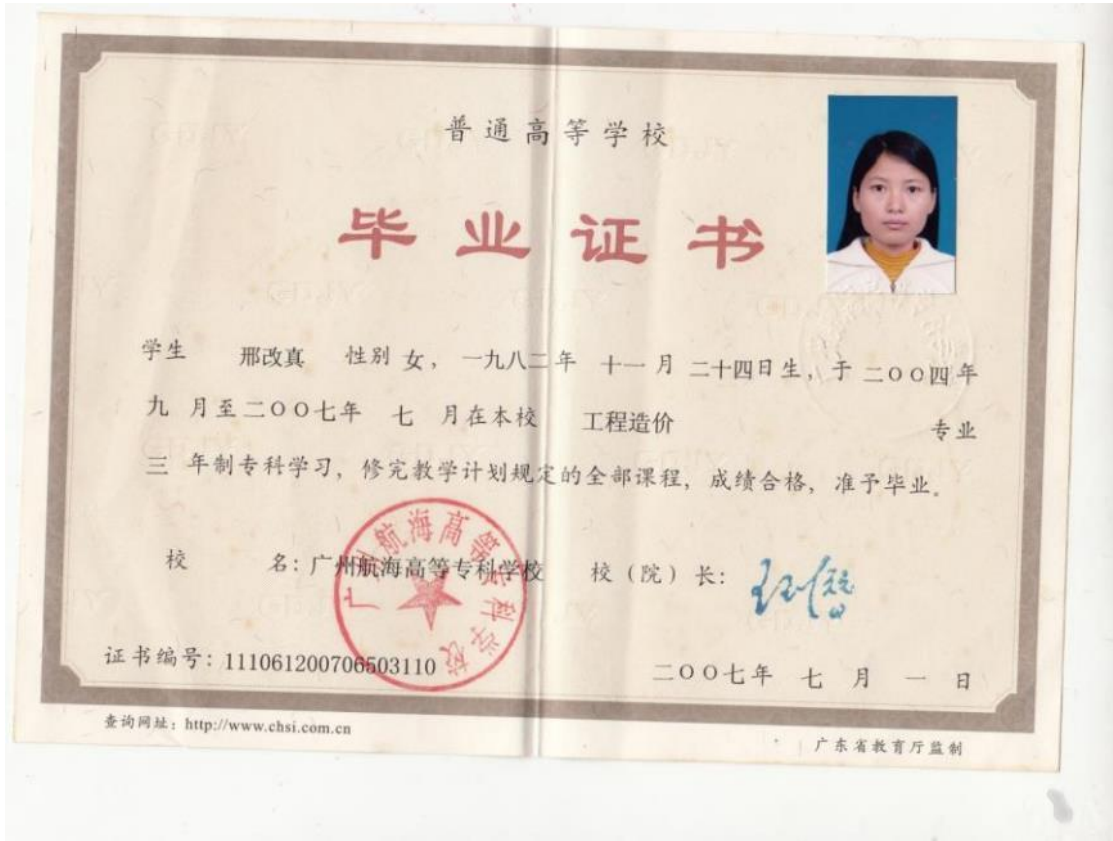 普通高等学校
毕业证书
学生 邢改真 性别 女， 一九八二年 十一 月 二十四日生，于 二〇〇四年
九 月至二〇〇七年 七 月在本校 工程造价 专业
三 年制专科学习，修完教学计划规定的全部课程，成绩合格，准予毕业。
校 名：广州航海高等专科学校 校（院）长：
广州航海高等专科学校
证书编号：111061200706503110 二〇〇七年 七 月 一 日
查询网址：http://www.chsi.com.cn 广东省教育厅监制